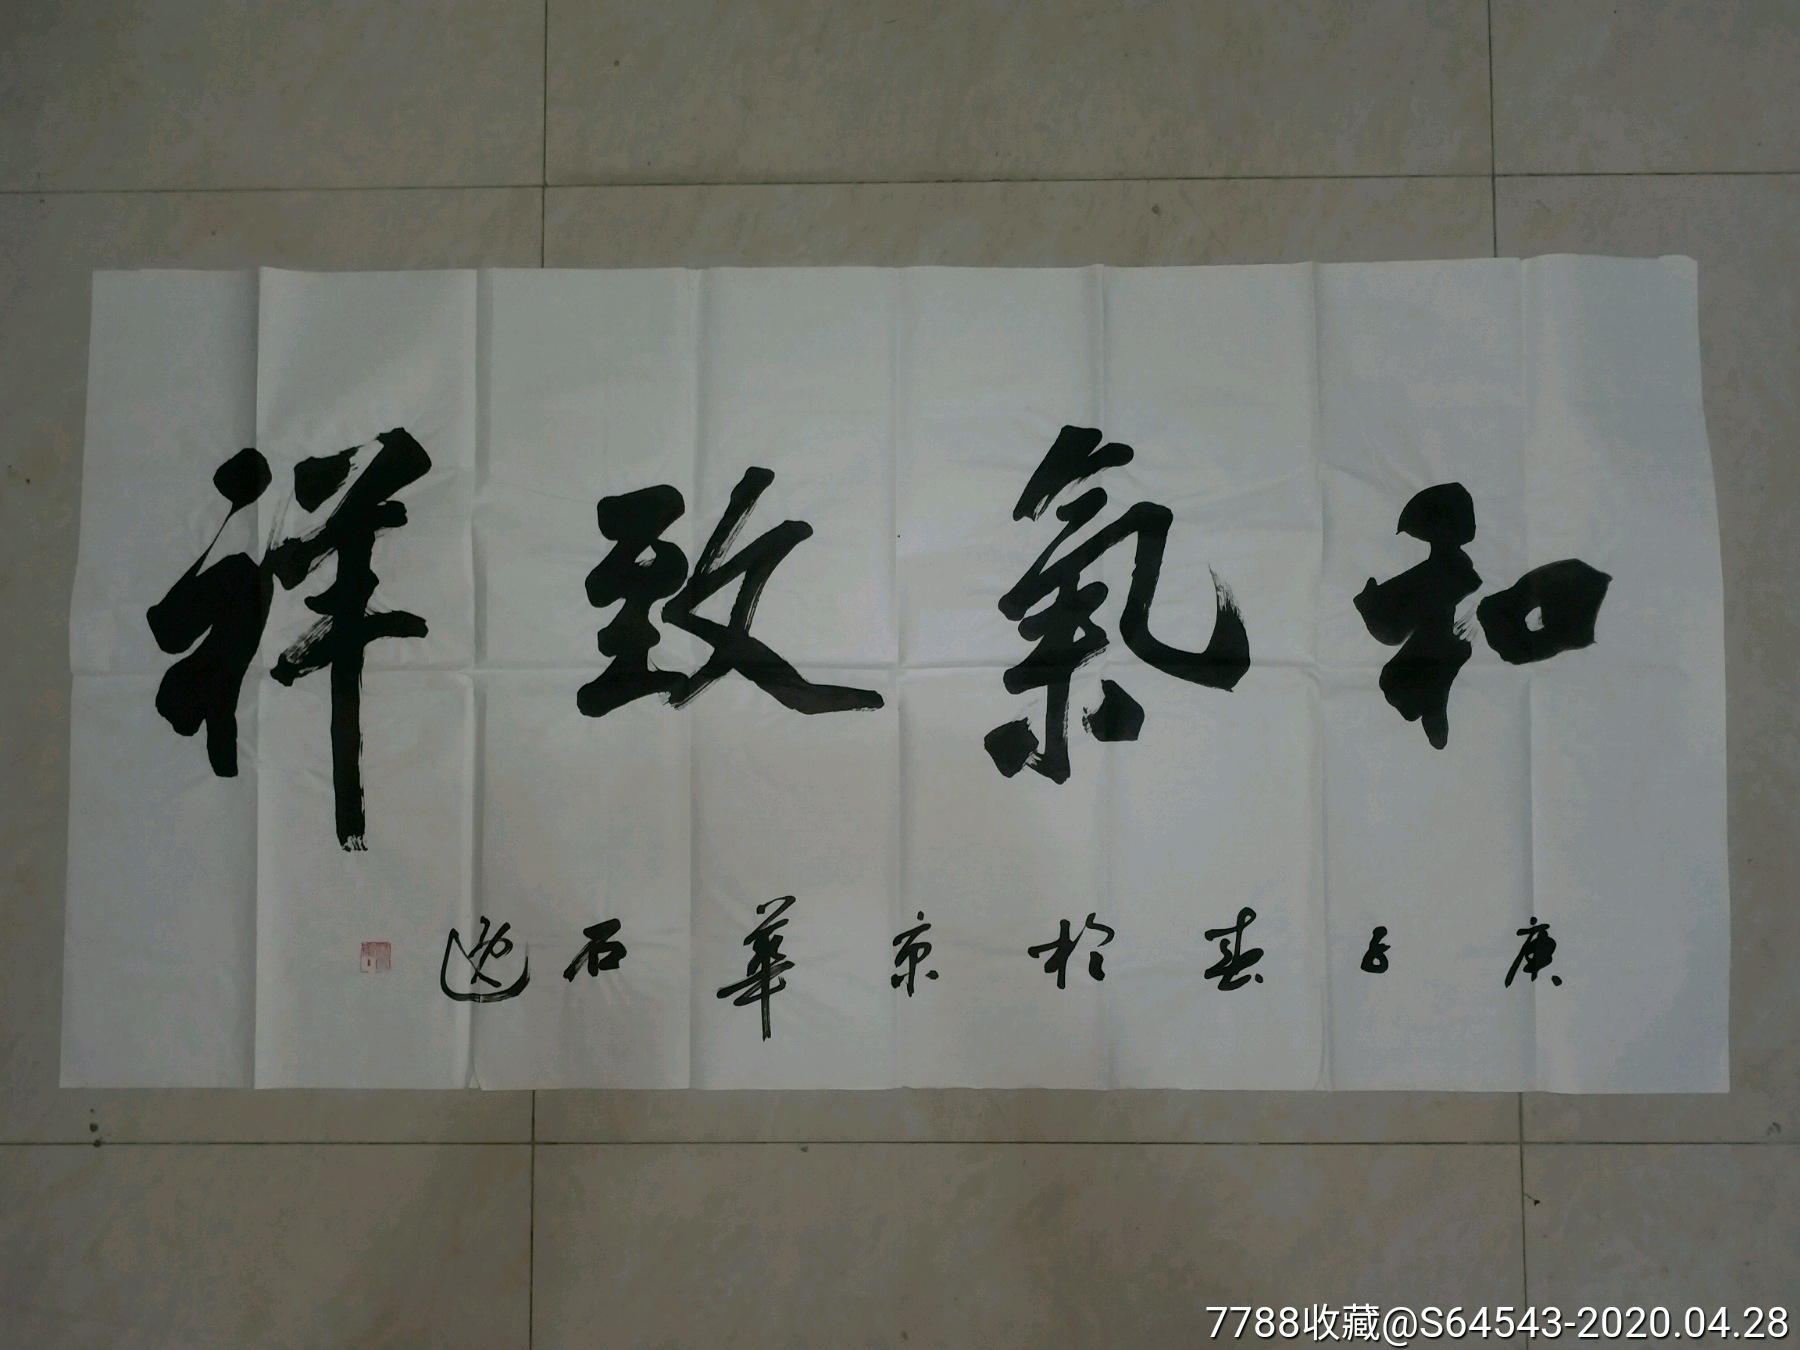 和氣致祥
庚子春於京華石逸
7788收藏@S64543-2020.04.28